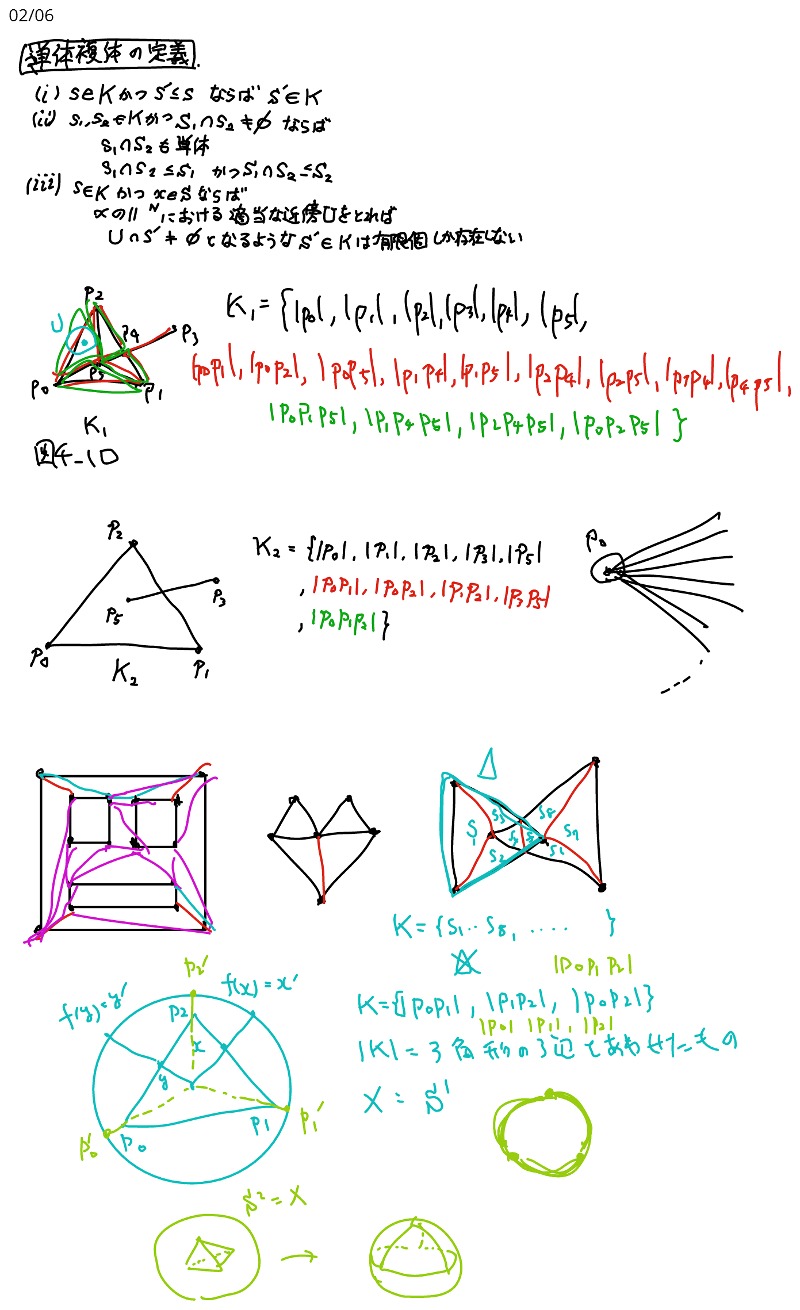 02/06
単体複体の定義.
(i) s∈Kかつ s'≤s ならば s'∈K
(ii) s₁,s₂∈Kかつ s₁∩s₂≠∅ ならば
s₁∩s₂も単体
s₁∩s₂≤s₁ かつ s₁∩s₂≤s₂
(iii) s∈K かつ x∈s ならば
xの‖ᴺにおける適当な近傍Uをとれば
U∩s'≠∅となるようなs'∈Kは有限個しか存在しない
p2
U
p4
p3
p5
p0
p1
K₁
図4-10
K₁={|p0|, |p1|, |p2|, |p3|, |p4|, |p5|,
|p0p1|, |p0p2|, |p0p5|, |p1p4|, |p1p5|, |p2p4|, |p2p5|, |p3p4|, |p4p5|,
|p0p1p5|, |p1p4p5|, |p2p4p5|, |p0p2p5| }
p2
p5
p3
p0
p1
K₂
K₂={|p0|, |p1|, |p2|, |p3|, |p5|
, |p0p1|, |p0p2|, |p1p2|, |p3p5|
, |p0p1p2| }
p0
Δ
S₁
S₂
K={S₁‥S₈, ‥‥ }
|p0p1p2|
K={|p0p1|, |p1p2|, |p0p2|}
|p0| |p1|, |p2|
|K|=3角形の3辺をあわせたもの
X = S¹
p2'
f(x)=x'
f(y)=y'
p2
x
y
p0
p1
p0'
p1'
S²=X